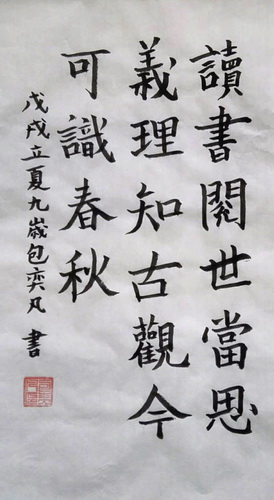 讀書閱世當思
義理知古觀今
可識春秋
戊戌立夏九歲包奕凡書